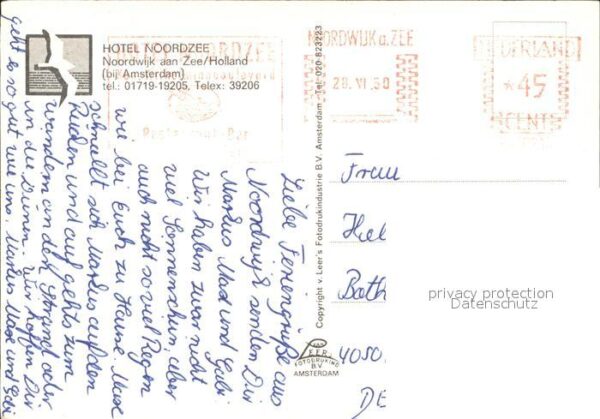 HOTEL NOORDZEE
Noordwijk aan Zee/Holland
(bij Amsterdam)
tel.: 01719-19205, Telex: 39206
NOORDWIJK a. ZEE
20. VI. 50
NEDERLAND
45
CENT
Liebe Feriengrüße aus
Noordwijk senden Dir
Markus Maxe und Gabi
Wir haben zwar nicht
viel Sonnenschein, aber
auch nicht so viel Regen
wie bei Euch zu Hause. Maxe
schnallt sich Markus auf den
Rücken und auf gehts zum
wandern an den Strand oder
in die Dünen. Wir hoffen Dir
geht es so gut wie uns. Markus Maxe und Gabi
Copyright v. Leer's Fotodrukindustrie B.V. Amsterdam - Tel. 020 823223
VAN
LEER
FOTODRUKIND
B.V.
AMSTERDAM
Frau
Hel
Both
4050
DE
privacy protection
Datenschutz